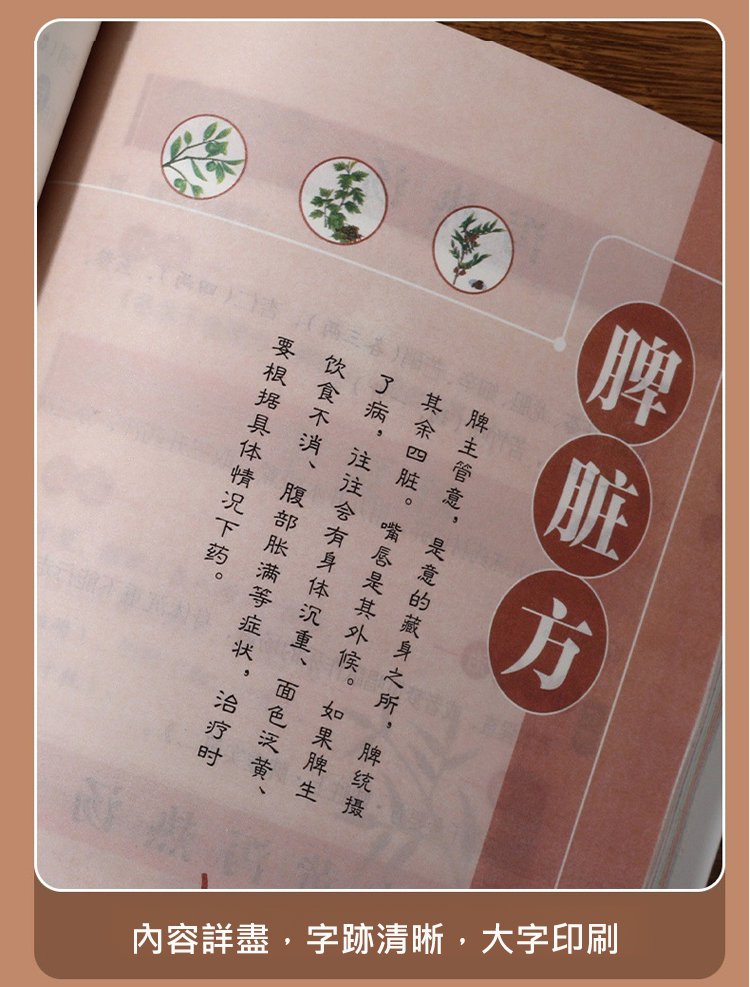 脾脏方
脾主管意，是意的藏身之所，脾统摄
其余四脏。嘴唇是其外候。如果脾生
了病，往往会有身体沉重、面色泛黄、
饮食不消、腹部胀满等症状，治疗时
要根据具体情况下药。
內容詳盡，字跡清晰，大字印刷